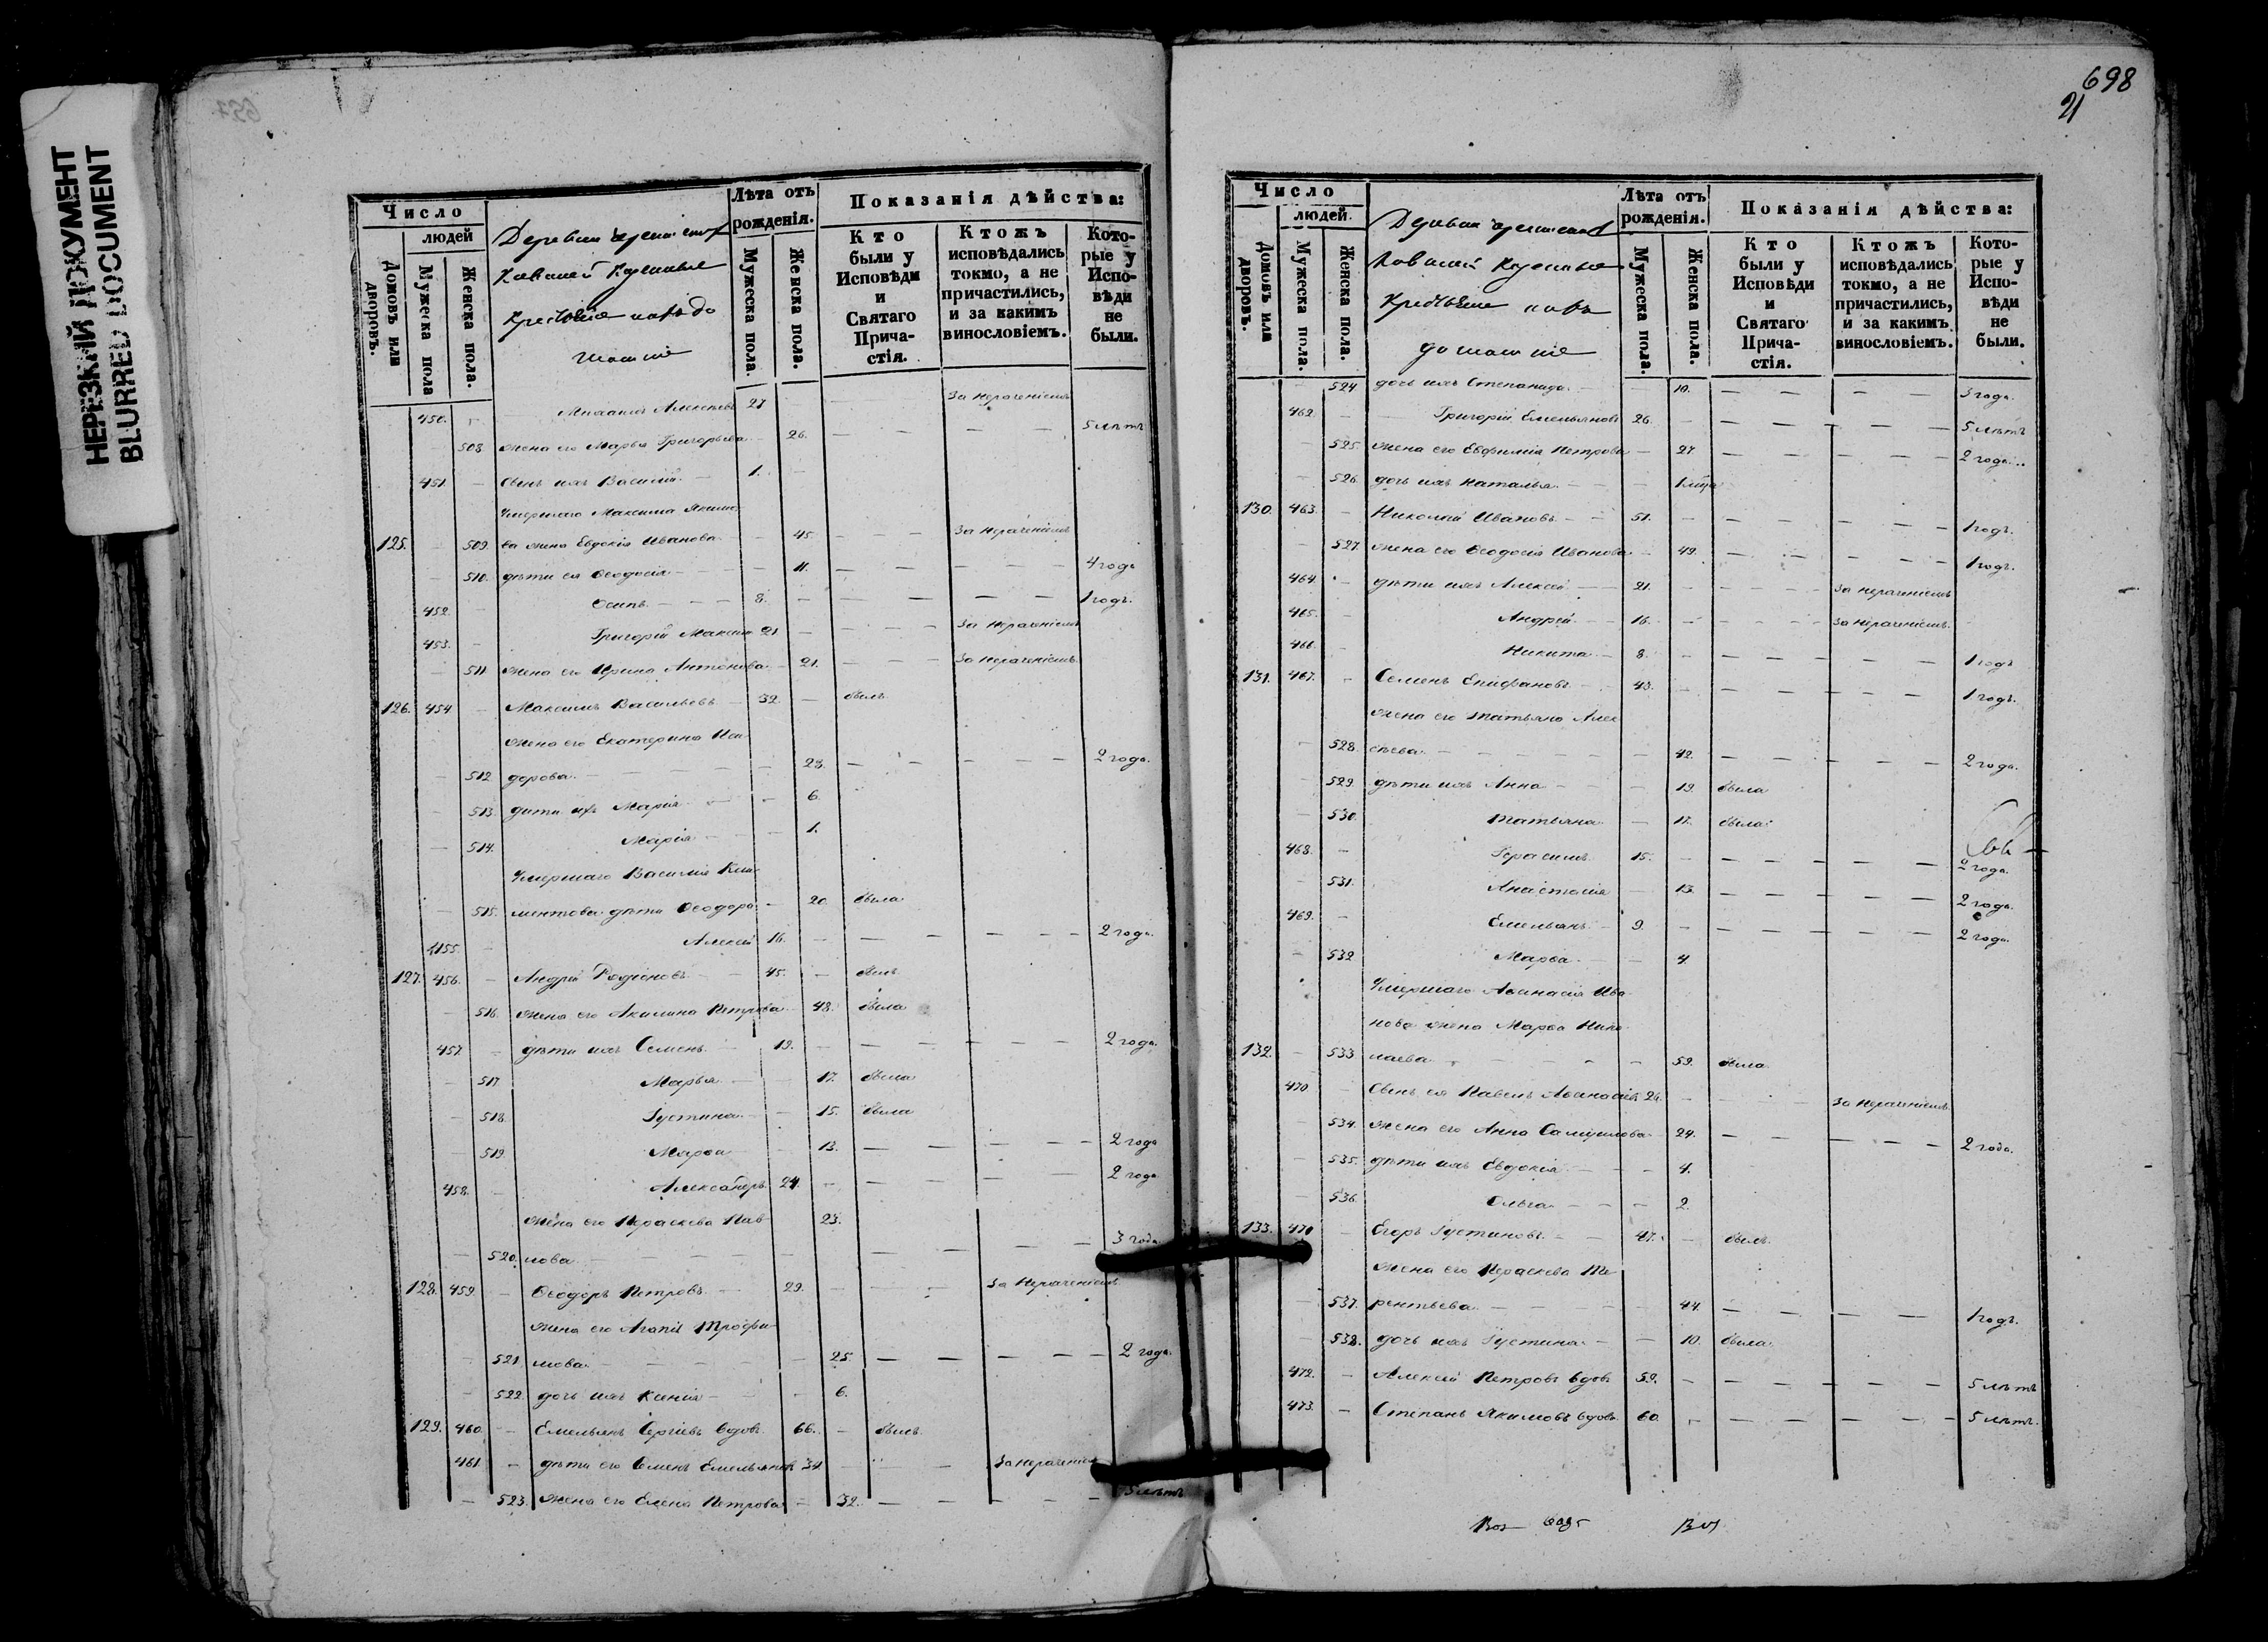 НЕРЕЗКИЙ ДОКУМЕНТ
BLURRED DOCUMENT
Число
людей
Домовъ или дворовъ.
Мужеска пола
Женска пола.
Деревни
Лѣта отъ рожденія.
Мужеска пола.
Женска пола.
Показанія дѣйства:
Кто были у Исповѣди и Святаго Причастія.
Ктожъ исповѣдались токмо, а не причастились, и за какимъ винословіемъ.
Которые у Исповѣди не были.
450. Михаилъ Алексѣевъ 27 За нераченіемъ
508 жена его Марья Григорьева 26. 5 лѣтъ
451. Сынъ ихъ Василій 1.
Умершаго Максима Якимо
125. 509. ва жена Евдокія Иванова 45 За нераченіемъ
510. дѣти ея Ѳеодосія 11. 4 года
452. Осипъ 8. 1 годъ.
453. Григорій Максим 21 За нераченіемъ
511. жена его Ирина Антонова 21. За нераченіемъ
126. 454 Максимъ Васильевъ 32. былъ
жена его Екатерина Иси
512 дорова 28. 2 года.
513. дѣти ихъ Марія 6.
514. Марія 1.
Умершаго Василія Кли
515. ментова дѣти Ѳеодора 20 была
455. Алексѣй 16. 2 года.
127. 456. Андрей Родіоновъ 45. былъ
516. жена его Акилина Петрова 48. была
457. дѣти ихъ Семенъ 19. 2 года.
517. Марья 17. была
518. Густина 15. была
519 Марѳа 13. 2 года
458. Александръ 24. 2 года
жена его Параскева Пав 23.
520. лова 3 года
128. 459. Ѳеодоръ Петровъ 29. За нераченіемъ
жена его Агапія Трофи
521. мова 25. 2 года.
522. дочь ихъ Ксенія 6.
129. 460. Емельянъ Сергіевъ вдовъ 66. былъ
461. дѣти его Семенъ Емельяновъ 34 За нераченіем
523. жена его Елена Петрова 32. 5 лѣтъ
698
21
Число
людей.
Домовъ или дворовъ.
Мужеска пола.
Женска пола.
Деревни
Лѣта отъ рожденія.
Мужеска пола.
Женска пола.
Показанія дѣйства:
Кто были у Исповѣди и Святаго Причастія.
Ктожъ исповѣдались токмо, а не причастились, и за какимъ винословіемъ.
Которые у Исповѣди не были.
524 дочь ихъ Степанида 10. 3 года.
462. Григорій Емельяновъ 26. 5 лѣтъ
525. жена его Евфимія Петрова 27 2 года
526. дочь ихъ Наталья
130. 463. Николай Ивановъ 51. 1 годъ.
527. жена его Ѳеодосія Иванова 49. 1 годъ.
464 дѣти ихъ Алексѣй 21. За нераченіемъ
465. Андрей 16. За нераченіемъ
466. Никита 8. 1 годъ
131. 467. Семенъ Епифановъ 43. 1 годъ.
жена его Татьяна Алек
528. сѣева 42. 2 года.
529. дѣти ихъ Анна 19. была
530. Татьяна 17. была
468. Герасимъ 15. 2 года.
531. Анастасія 13. 2 года.
469. Емельянъ 9. 2 года.
532 Марѳа 4.
Умершаго Аѳанасія Ива
нова жена Марѳа Нико
132. 533 лаева 59. была
470 Сынъ ея Павелъ Аѳанасіевъ 26. За нераченіемъ
534. жена его Анна Самуилова 24. 2 года.
535. дѣти ихъ Евдокія 4.
536. Ольга 2.
133. 471 Егоръ Густиновъ 47. былъ
жена его Параскева Те
537. рентьева 44. 1 годъ.
538. дочь ихъ Густина 10. была
472. Алексѣй Петровъ вдовъ 59. 5 лѣтъ
473. Степанъ Якимовъ вдовъ 60. 5 лѣтъ.